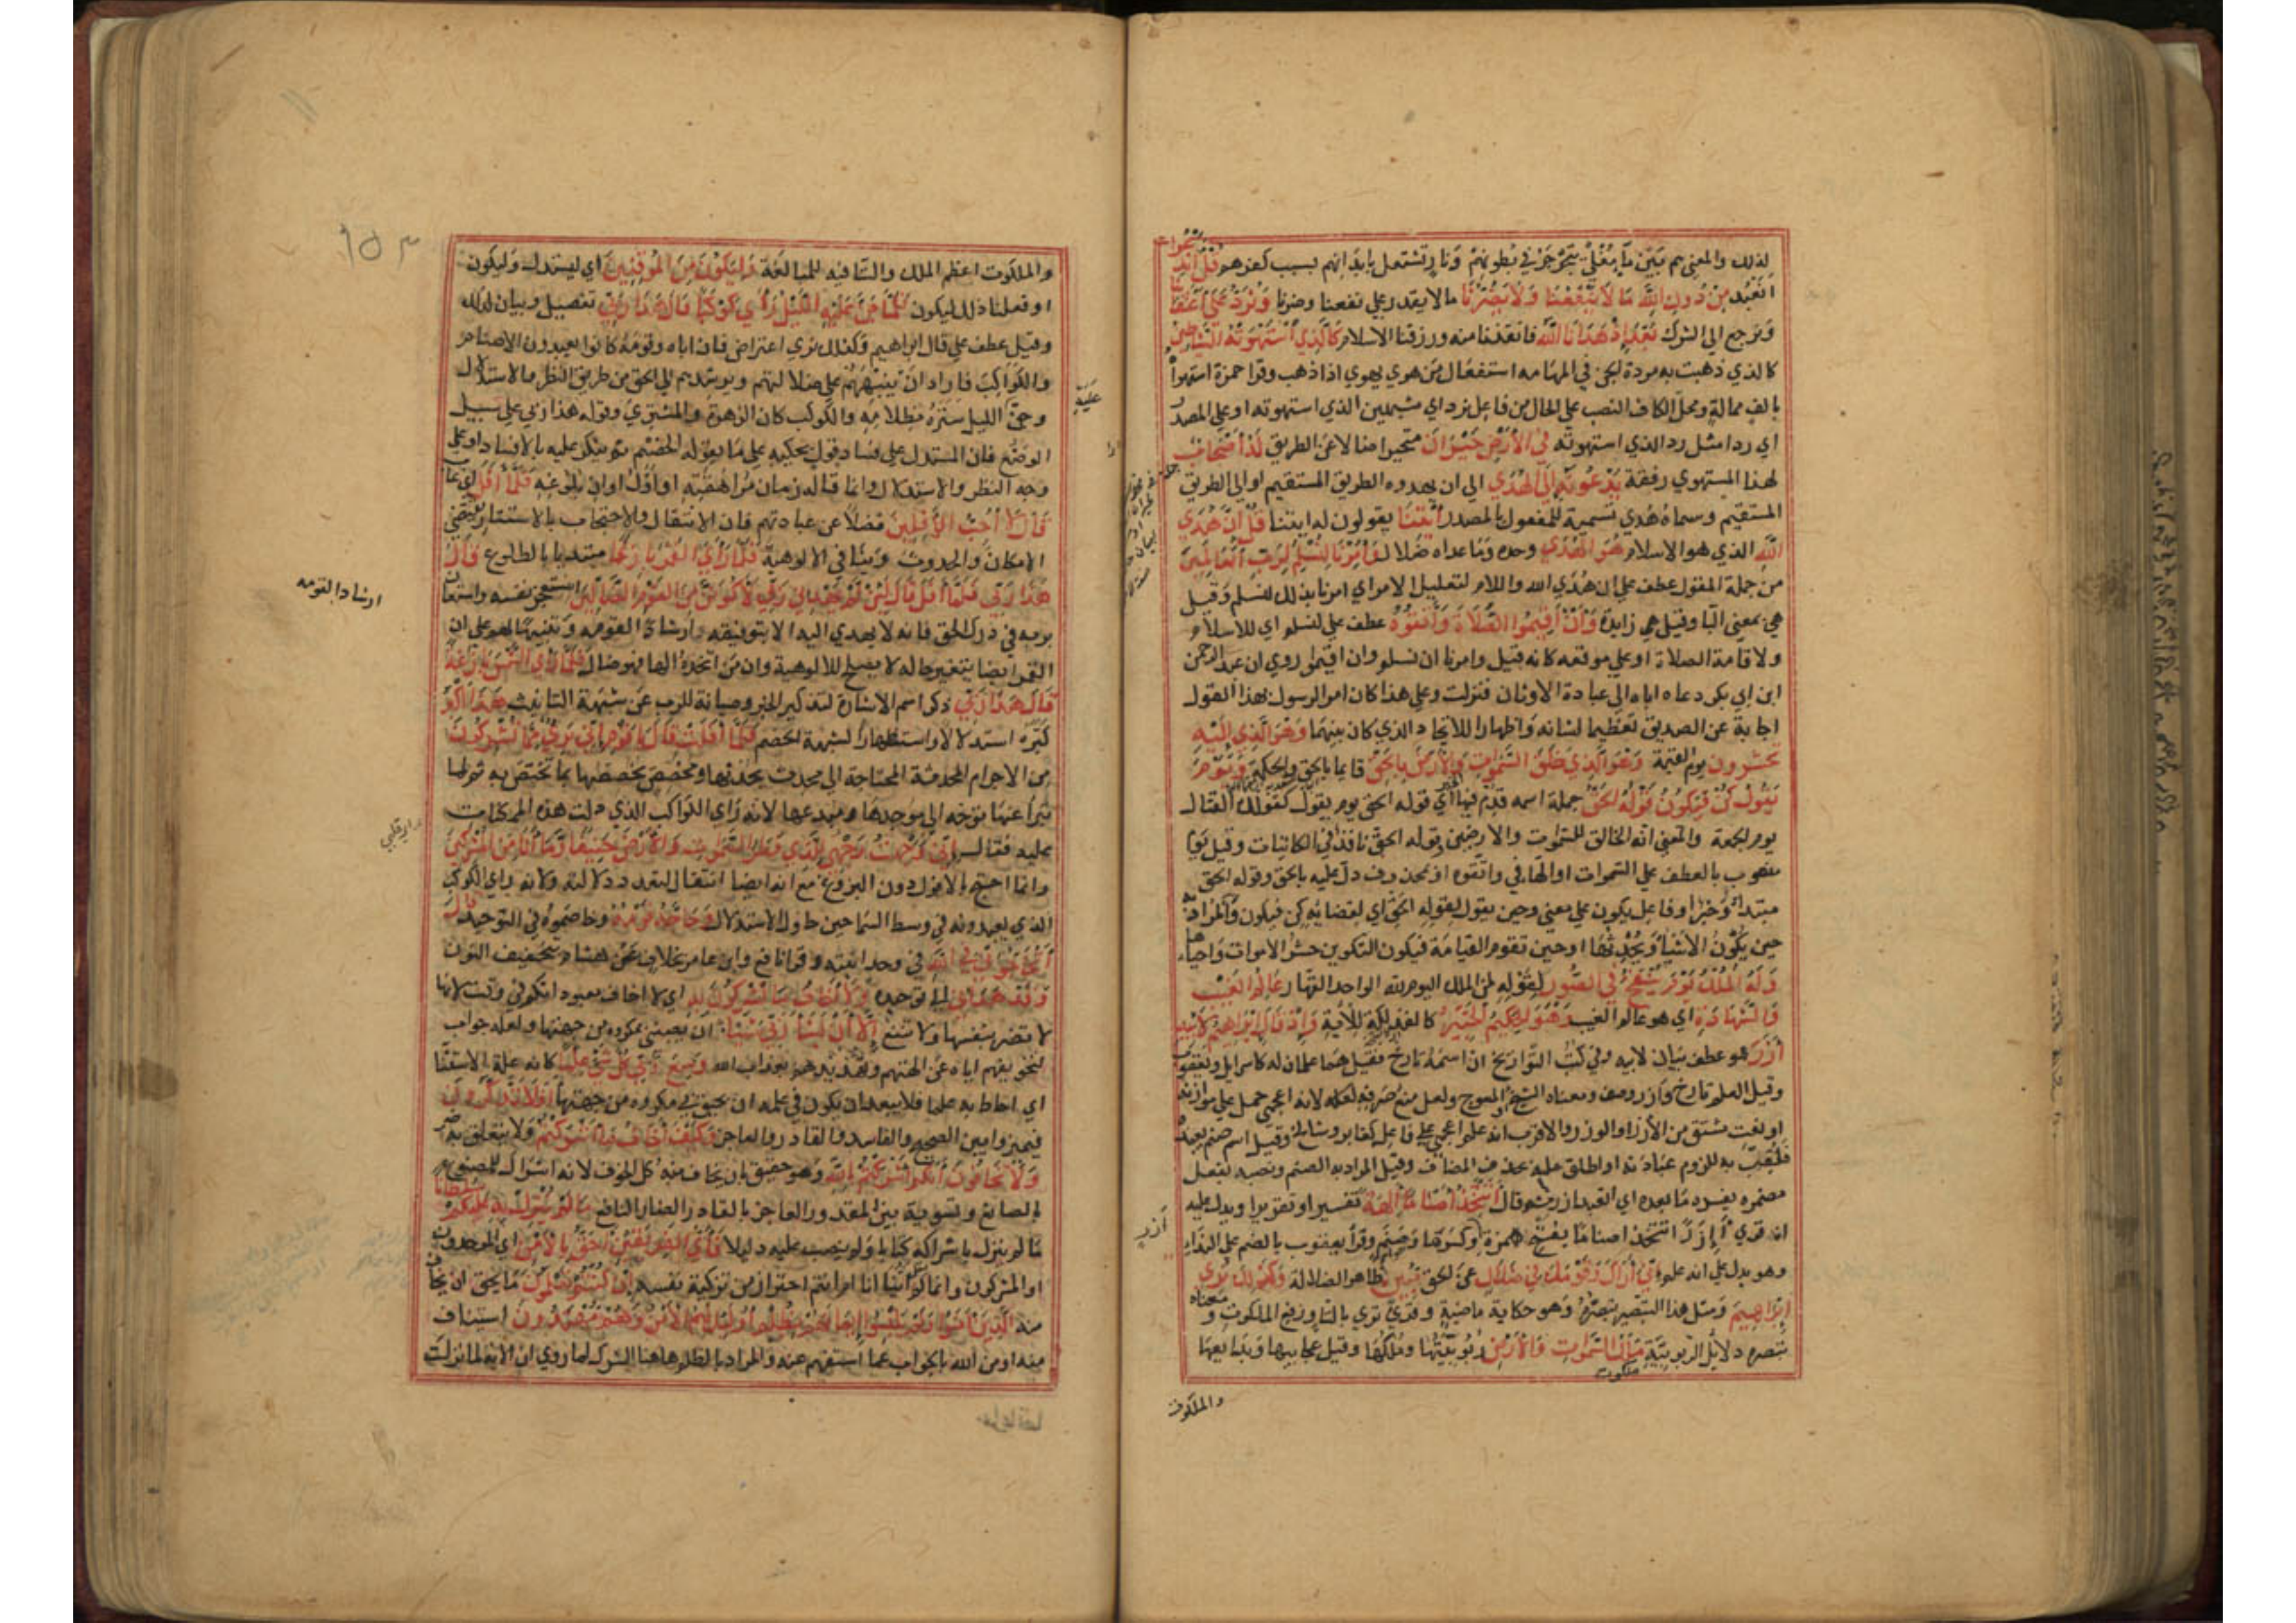 لذلك والمعنى هم بين ماء مغلي يتجرجر في بطونهم ونار تشتعل بابدانهم بسبب كفرهم قل اندعوا
انعبد من دون الله ما لا ينفعنا ولا يضرنا ما لا يقدر على نفعنا وضرنا ونرد على اعقابنا
ونرجع الى الشرك بعد اذ هدانا الله فانقذنا منه ورزقنا الاسلام كالذي استهوته الشياطين
كالذي ذهبت به مردة الجن في المهامه استفعال من هوي يهوي اذا ذهب وقرا حمزة استهواه
بالف ممالة ومحل الكاف النصب على الحال من فاعل نرد اي مشبهين الذي استهوته او على المصدر
اي ردا مثل رد الذي استهوته في الارض حيران متحيرا ضالا عن الطريق له اصحاب
لهذا المستهوي رفقة يدعونه الى الهدي الى ان يهدوه الطريق المستقيم او الى الطريق
المستقيم وسماه هدي تسمية للمفعول بالمصدر ائتنا يقولون له ايتنا قل ان هدي
الله الذي هو الاسلام هو الهدي وحده وما عداه ضلال وامرنا لنسلم لرب العالمين
من جملة المقول عطف على ان هدي الله واللام لتعليل الامر اي امرنا بذلك لنسلم وقيل
هي بمعنى البا وقيل هي زايدة وان اقيموا الصلاة واتقوه عطف على لنسلم اي للاسلام
ولاقامة الصلاة او على موقعه كانه قيل وامرنا ان نسلم وان اقيموا روي ان عبد الرحمن
ابن ابي بكر دعاه اباه الى عبادة الاوثان فنزلت وعلى هذا كان امر الرسول بهذا القول
اجابة عن الصديق تعظيما لشانه واظهارا للاتحاد الذي كان بينهما وهو الذي اليه
تحشرون يوم القيمة وهو الذي خلق السموات والارض بالحق قايما بالحق والحكمة ويوم
يقول كن فيكون قوله الحق جملة اسميه قدم فيها الخبر اي قوله الحق يوم يقول كقولك القتال
يوم الجمعة والمعنى انه الخالق للسموات والارضين وقوله الحق نافذ في الكائنات وقيل يوم
منصوب بالعطف على السموات او الها في واتقوه او بمحذوف دل عليه بالحق وقوله الحق
مبتدا وخبر او فاعل يكون على معنى وحين يقول لقوله الحق اي لقضائه كن فيكون والمراد به
حين يكون الاشياء ويحدثها او حين تقوم القيامة فيكون التكوين حشر الاموات واحياءها
وله الملك يوم ينفخ في الصور لقوله لمن الملك اليوم لله الواحد القهار عالم الغيب
والشهادة اي هو عالم الغيب وهو الحكيم الخبير كالفذلكة للآية واذ قال ابراهيم لابيه
آزر هو عطف بيان لابيه وفي كتب التواريخ ان اسمه تارخ فقيل هما علمان له كاسرايل ويعقوب
وقيل العلم تارخ وآزر وصف ومعناه الشيخ او المعوج ولعل منع صرفه لكله لانه اعجمي حمل على موازنه
او نعت مشتق من الأزر او الوزر والاقرب انه علم اعجمي على فاعل كعابر وشالخ وقيل اسم صنم يعبده
فلقب به للزوم عبادته او اطلق عليه بحذف المضاف وقيل المراد به الصنم ونصبه بفعل
مضمر يفسره ما بعده اي اتعبد ازر ثم قال اتتخذ اصناما آلهة تفسير او تقريرا ويدل عليه
انه قري أإزرا اتتخذ اصناما بفتح همزة وكسرها وضم وقرأ يعقوب بالضم على النداء
وهو يدل على انه علم اني اراك وقومك في ضلال عن الحق مبين ظاهر الضلالة وكذلك نري
ابراهيم ومثل هذا التبصير نبصره وهو حكاية ماضية وقري تري بالتا ورفع الملكوت ومعناه
تبصره دلايل الربوبية ملكوت السموات والارض ربوبيتها وملكها وقيل عجايبها وبدايعها
ملكوت
والملكوت
آزر
والملكوت اعظم الملك والتا فيه للمبالغة وليكون من الموقنين اي ليستدل وليكون
او فعلنا ذلك ليكون فلما جن عليه الليل رأي كوكبا قال هذا ربي تفصيل وبيان لذلك
وقيل عطف على قال ابراهيم وكذلك نري اعتراض فان اباه وقومه كانوا يعبدون الاصنام
والكواكب فاراد ان ينبههم على ضلالتهم ويرشدهم الى الحق من طريق النظر والاستدلال
وجن الليل ستره بظلامه والكوكب كان الزهرة او المشتري وقوله هذا ربي على سبيل
الوضع فان المستدل على فساد قول يحكيه على ما يقوله الخصم ثم يكر عليه بالافساد او على
وجه النظر والاستدلال وانما قاله زمان مراهقته او اول اوان بلوغه فلما افل اي غاب
قال لا احب الآفلين فضلا عن عبادتهم فان الانتقال والاحتجاب بالاستتار يقتضي
الامكان والحدوث وينافي الالوهية فلما راي القمر بازغا مبتديا بالطلوع قال
هذا ربي فلما افل قال لئن لم يهدني ربي لاكونن من القوم الضالين استعجز نفسه واستعان
بربه في درك الحق فانه لا يهدي اليه الا بتوفيقه وارشادا لقومه وتنبيها لهم على ان
القمر ايضا يتغير حاله لا يصلح للالوهية وان من اتخذه الها فهو ضال فلما راي الشمس بازغة
قال هذا ربي ذكر اسم الاشارة لتذكير الخبر وصيانة للرب عن شبهة التانيث هذا اكبر
كبره استدلالا واستظهارا لشبهة الخصم فلما افلت قال يا قوم اني بريء مما تشركون
من الاجرام المحدثة المحتاجة الى محدث يحدثها ومخصص يخصصها بما تختص به ثم لما
تبرأ عنها توجه الى موجدها ومبدعها لانه راي الكواكب الذي دلت هذه الممكنات
عليه فقال اني وجهت وجهي للذي فطر السموات والارض حنيفا وما انا من المشركين
وانما احتج بالافول دون البزوغ مع انه ايضا انتقال لتعدد دلالته ولانه راي الكوكب
الذي يعبدونه في وسط السما حين حاول الاستدلال وحاجه قومه وخاصموه في التوحيد قال
أتحاجوني في الله في وحدانيته وقرا نافع وابن عامر بخلاف عن هشام بتخفيف النون
وقد هداني الى توحيده ولا اخاف ما تشركون به اي لا اخاف معبوداتكم في وقت لانها
لا تضر بنفسها ولا تنفع إلا ان يشأ ربي شيئا ان يصيبني بمكروه من جهتها ولعله جواب
لتخويفهم اياه عن الهتهم وتهديدهم بعذاب الله وسع ربي كل شئ علما كانه علة الاستثنا
اي احاط به علما فلا يبعد ان يكون في علمه ان يحيق بي مكروه من جهتها افلا تتذكرون
فتميزوا بين الصحيح والفاسد والقادر والعاجز وكيف اخاف ما اشركتم ولا يتعلق به ضر
ولا تخافون انكم اشركتم بالله وهو حقيق بان يخاف منه كل الخوف لانه اشراك للمصنوع
بالصانع وتسوية بين المقدور العاجز بالقادر الضار النافع ما لم ينزل به عليكم سلطانا
ما لم ينزل باشراكه كتابا ولم ينصب عليه دليلا فأي الفريقين احق بالأمن اي الموحدون
او المشركون وانما لم يقل اينا انا ام انتم احترازا من تزكية نفسه ان كنتم تعلمون ما يحق ان يخاف
منه الذين آمنوا ولم يلبسوا ايمانهم بظلم اولئك لهم الأمن وهم مهتدون استيناف
منه او من الله بالجواب عما استفهم عنه والمراد بالظلم هاهنا الشرك لما روي ان الآية لما نزلت
ارشادا لقومه